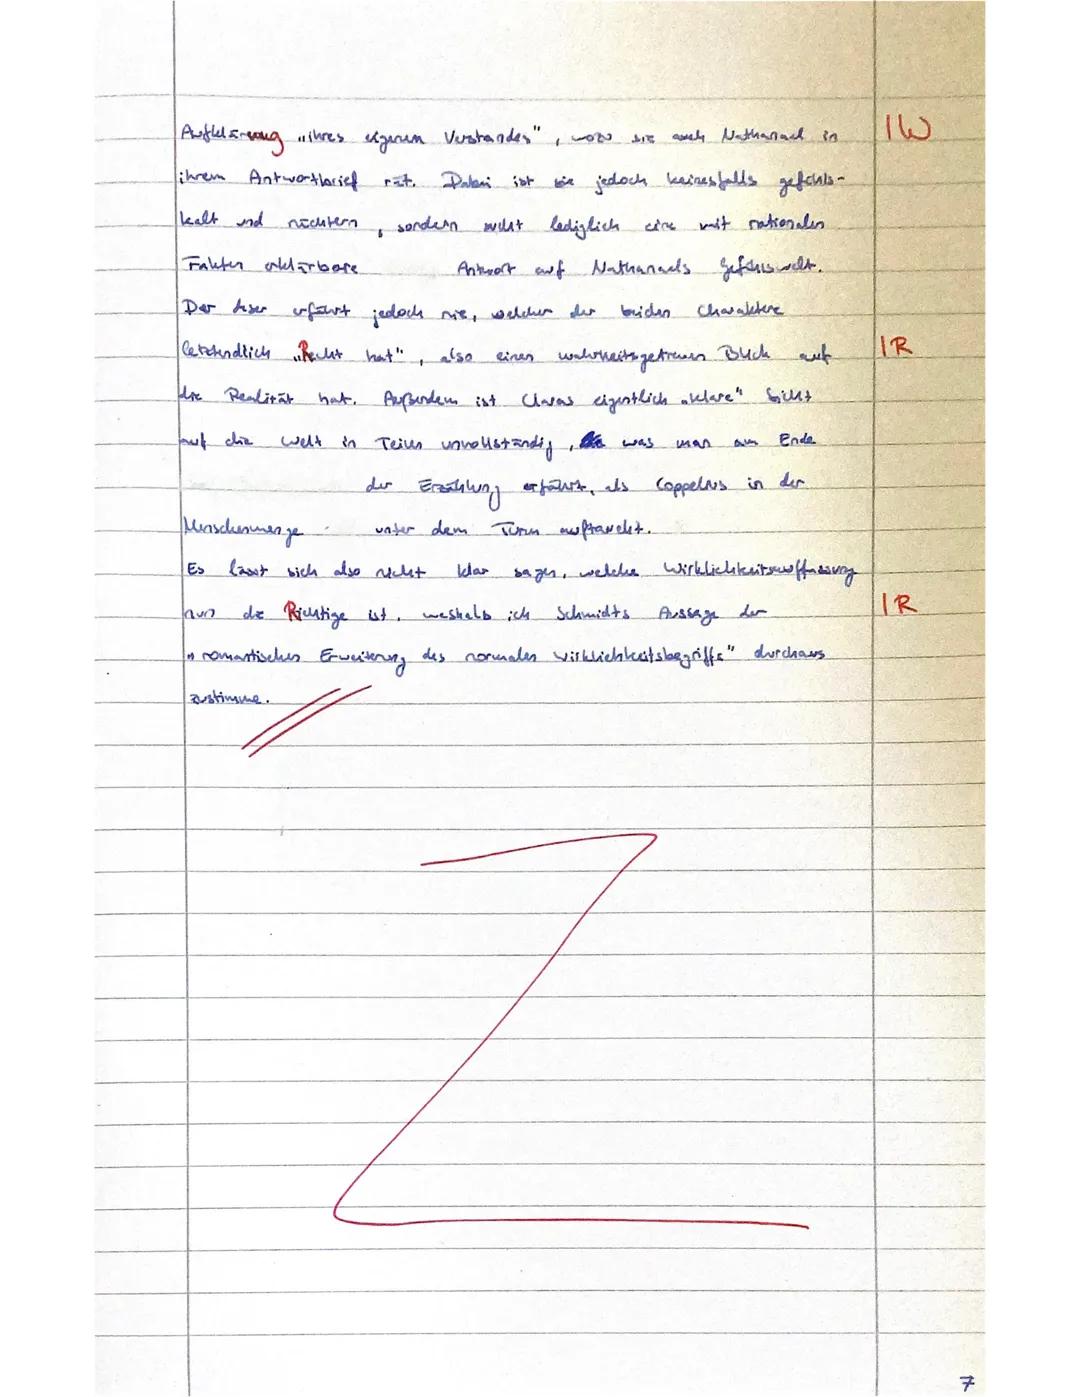 Aufklärung „ihres eigenen Verstandes", wozu sie auch Nathanael in IW
ihrem Antwortbrief rät. Dabei ist sie jedoch keinesfalls gefühls-
kalt und nüchtern, sondern sucht lediglich eine mit rationalen
Fakten erklärbare Antwort auf Nathanaels Gefühlswelt.
Der Leser erfährt jedoch nie, welcher der beiden Charaktere
letztendlich „Recht hat", also einen wahrheitsgetreuen Blick auf IR
die Realität hat. Außerdem ist Claras eigentlich „klare" Sicht
auf die Welt in Teilen unvollständig, was man am Ende
der Erzählung erfährt, als Coppelius in der
Menschenmenge unter dem Turm auftaucht.
Es lässt sich also nicht klar sagen, welche Wirklichkeitsauffassung
nun die Richtige ist, weshalb ich Schmidts Aussage der IR
„romantischen Erweiterung des normalen Wirklichkeitsbegriffs" durchaus
zustimme.
7